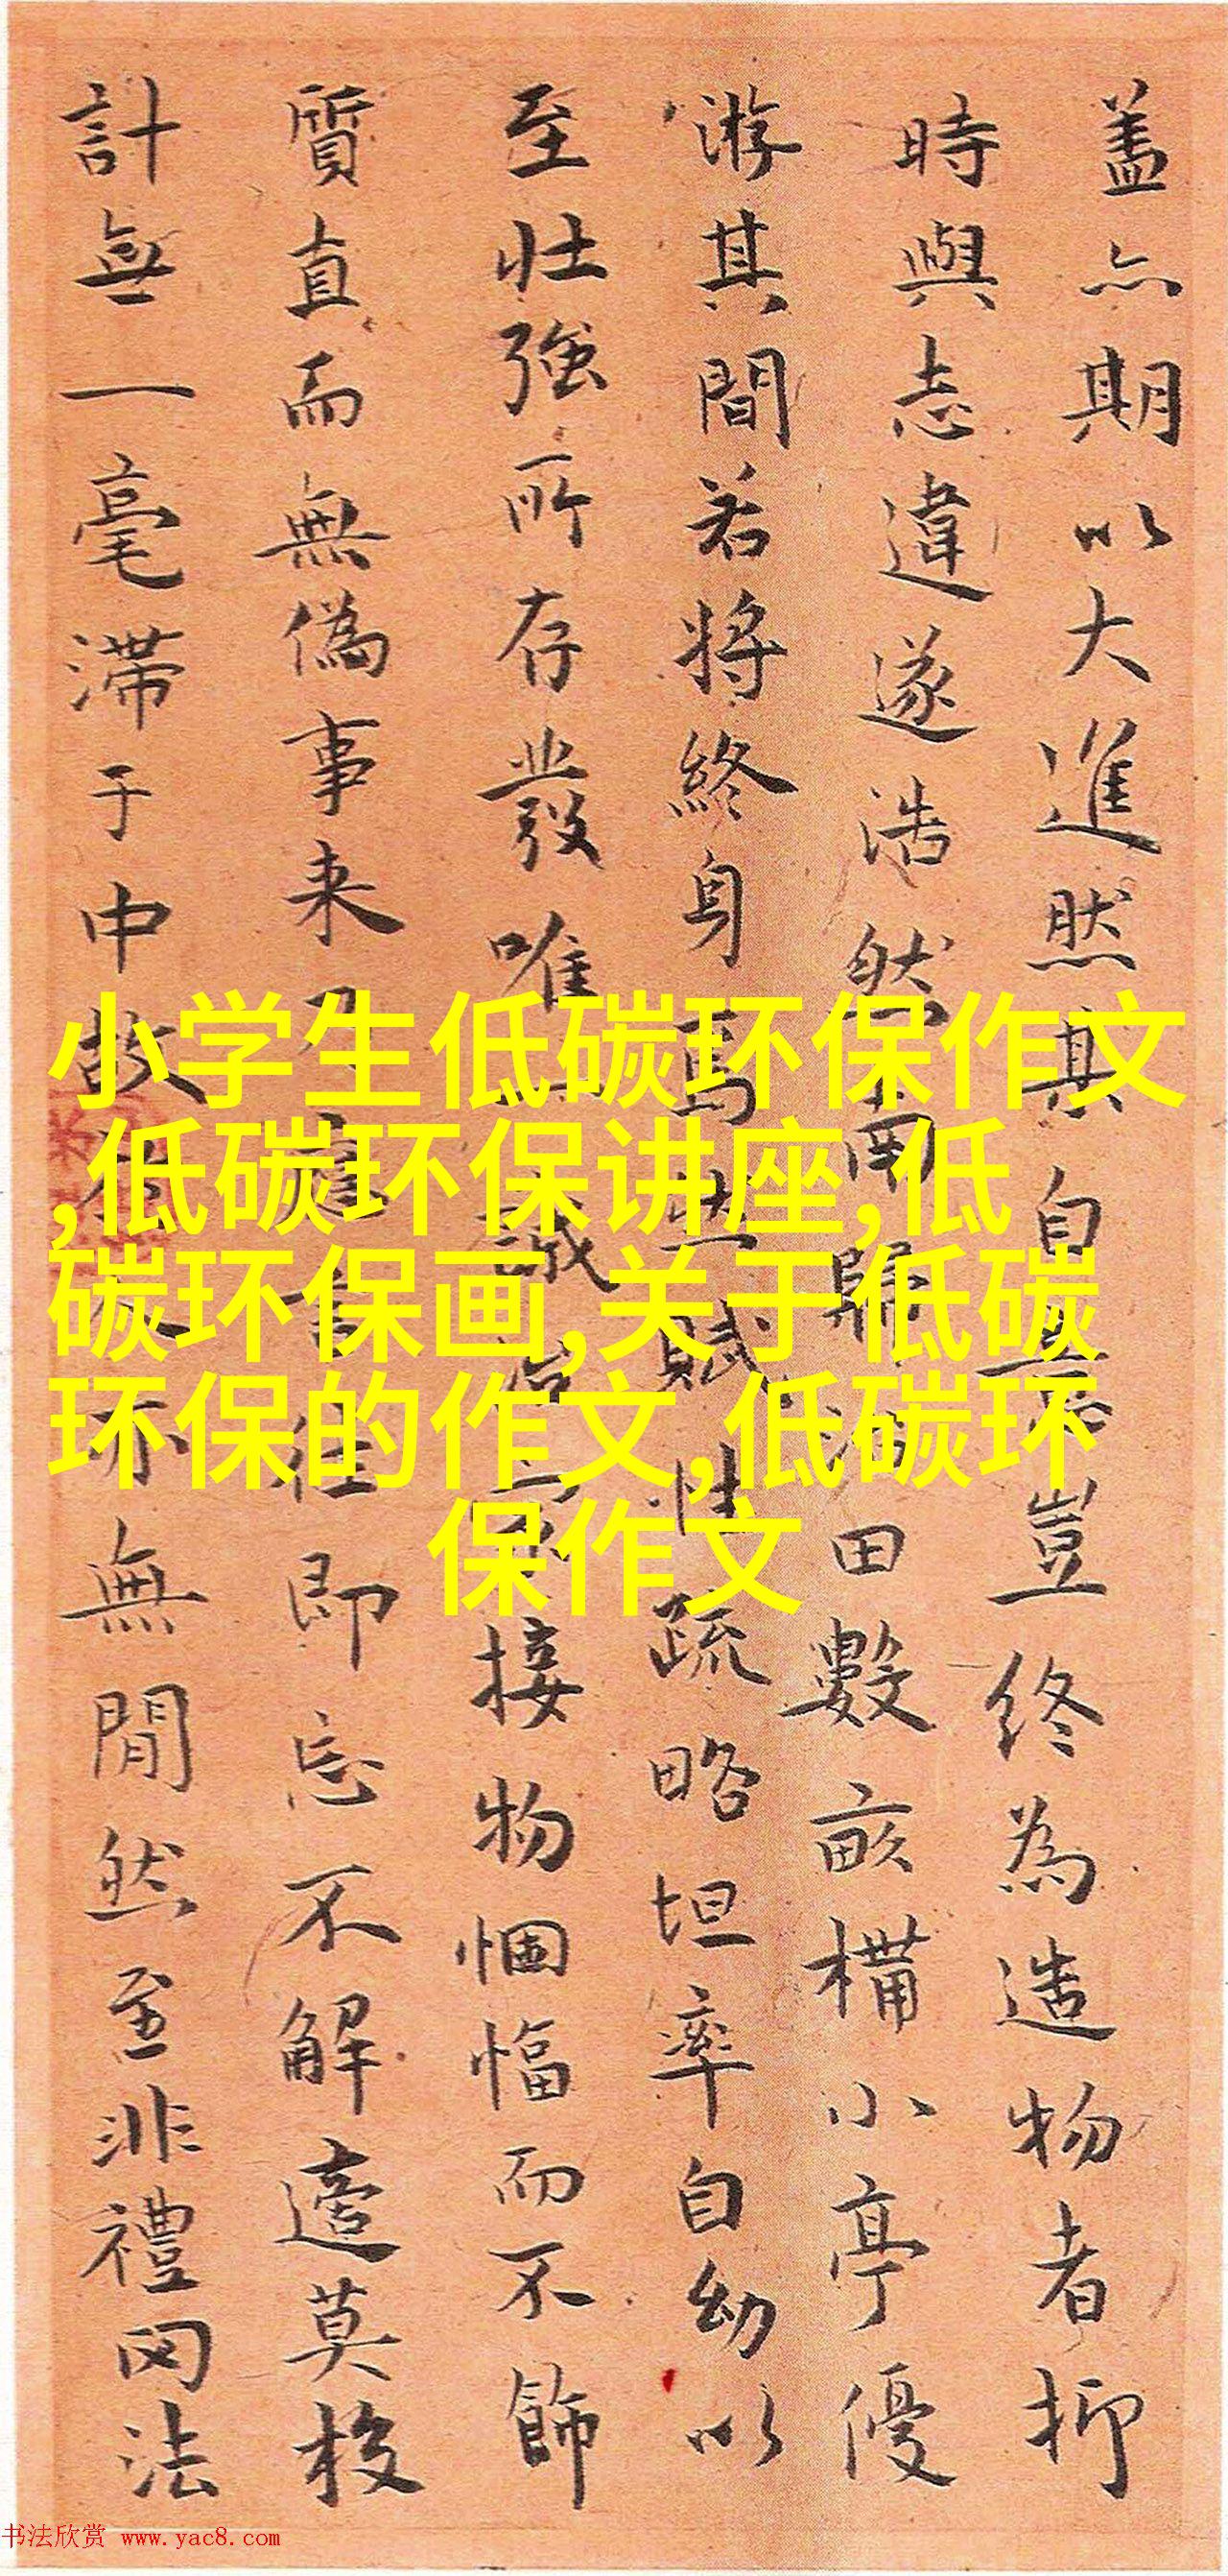 蓋亦期以大進然其自畫豈終為造物者抑
時與志違遂浩然南歸治田數畝構小亭優
游其間若將終身焉無賦性疏略坦率自幼以
至壯強所存發唯誠接物悃愊而不飾
質直而無偽事来乃應事往即忘不解適莫校
計無一毫滯于中故無間然至非禮罔法
小学生低碳环保作文
,低碳环保讲座,低
碳环保画,关于低碳
环保的作文,低碳环
保作文
书法欣赏 www.yac8.com